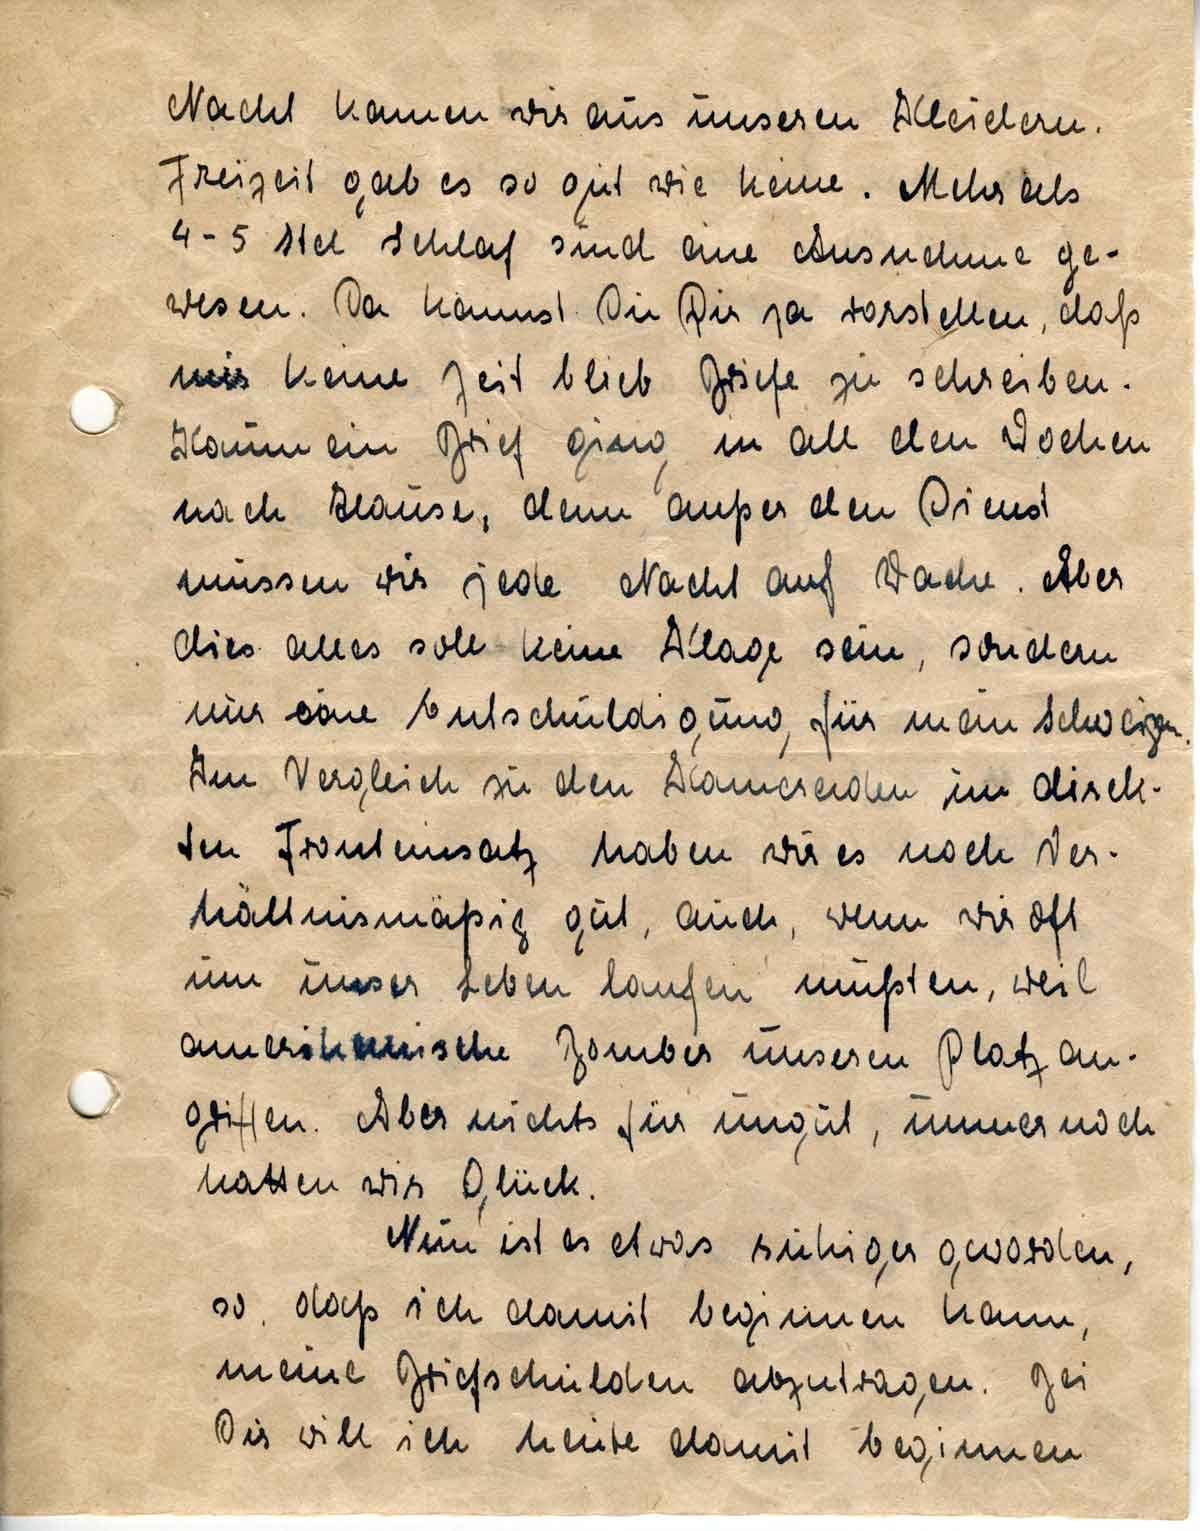 Nacht kamen wir aus unseren Kleidern.
Freizeit gab es so gut wie keine. Mehr als
4-5 Std Schlaf sind eine Ausnahme ge-
wesen. Da kannst Du Dir ja vorstellen, daß
mir keine Zeit blieb Briefe zu schreiben.
Kaum ein Brief ging in all den Wochen
nach Hause, denn außer den Dienst
müssen wir jede Nacht auf Wache. Aber
dies alles soll keine Klage sein, sondern
nur eine Entschuldigung für mein Schweigen.
Im Vergleich zu den Kameraden im direk-
ten Fronteinsatz haben wir es noch Ver-
hältnismäßig gut, auch, wenn wir oft
um unser Leben laufen mußten, weil
amerikanische Bomber unseren Platz an-
griffen. Aber nichts für ungut, immer noch
hatten wir Glück.
Nun ist es etwas ruhiger geworden,
so, daß ich damit beginnen kann,
meine Briefschulden abzutragen. Bei
Dir will ich heute damit beginnen